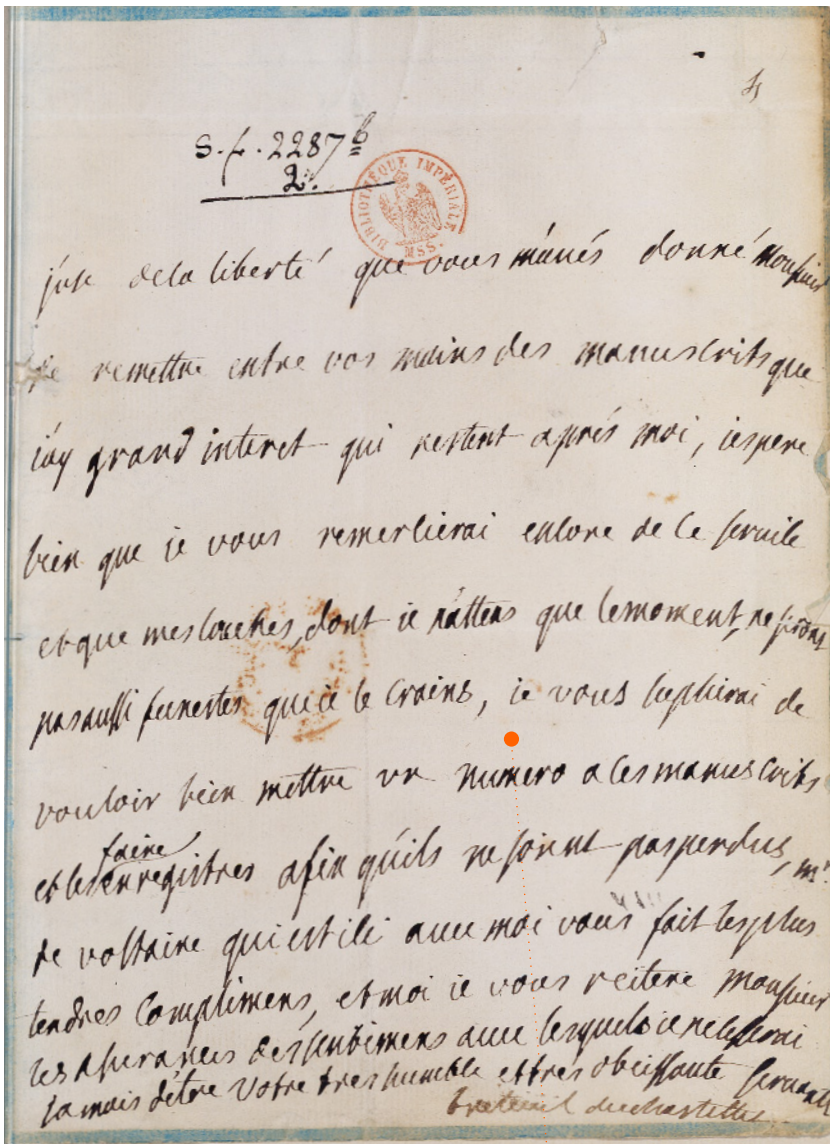 4
S. f. 2287 b
2.
BIBLIOTHÈQUE IMPÉRIALE
MSS.
j'use dela liberté que vous m'aués donné monsieur
de remettre entre vos mains des manuscrits que
j'ay grand interet qui restent aprés moi, iespere
bien que ie vous remercierai encore de ce seruice
et que mes couches, dont ie n'attens que lemoment, ne seront
pas aussi funestes que ie le crains, ie vous suplierai de
vouloir bien mettre un numero a ces manuscrits
et les faire enregistres afin qu'ils ne soient pas perdus, mr.
de voltaire qui est ici auec moi vous fait les plus
tendres complimens, et moi ie vous reitere monsieur
les assurances des sentimens auec lesquels ie ne cesserai
jamais d'être votre tres humble et trés obeissante seruante
breteuil duchastellet